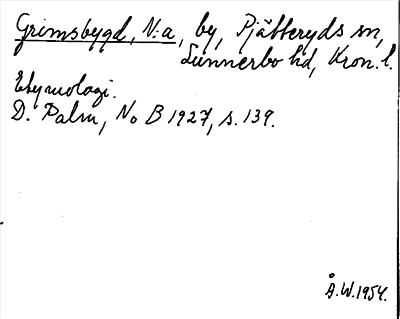 Grimsbygd, N:a, by, Pjätteryds sn,
Sunnerbo hd, Kron. l.
Etymologi.
D. Palm, No B 1927, s. 139.
Å.W. 1954.